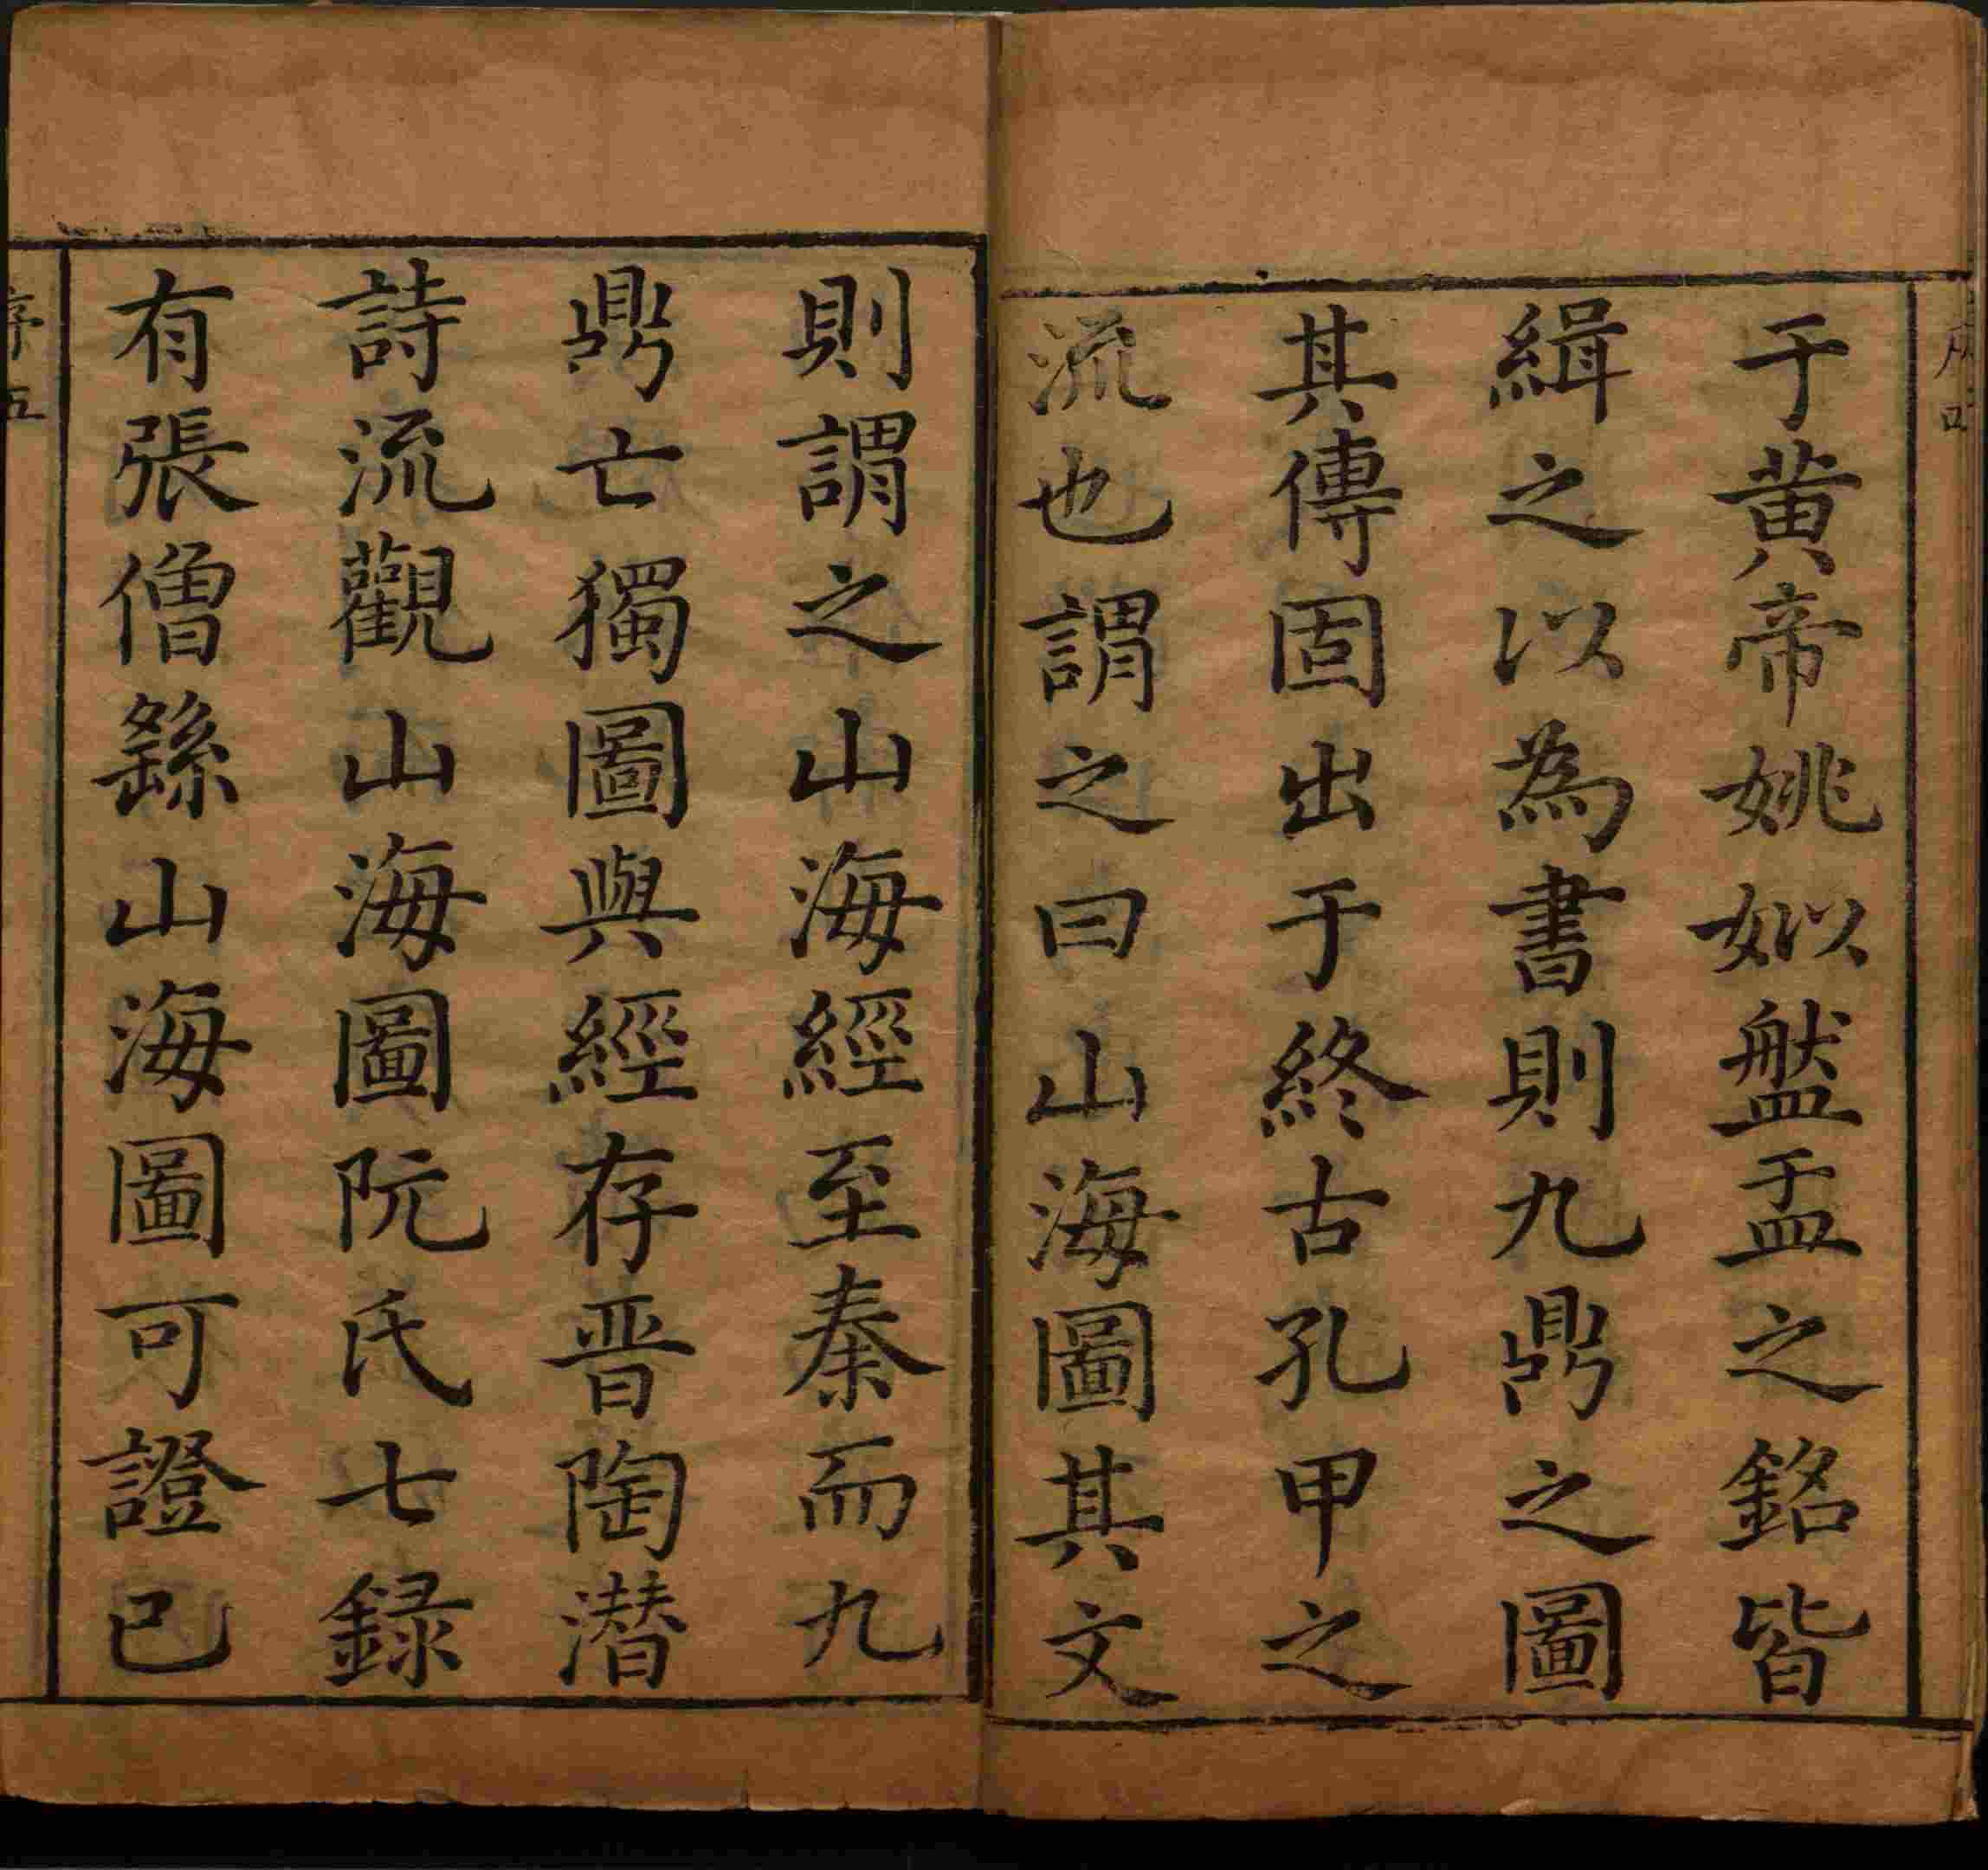 于黄帝姚姒盤盂之銘皆
緝之以為書則九鼎之圖
其傳固出于終古孔甲之
流也謂之曰山海圖其文
則謂之山海經至秦而九
鼎亡獨圖與經存晋陶潜
詩流觀山海圖阮氏七録
有張僧繇山海圖可證已
序五